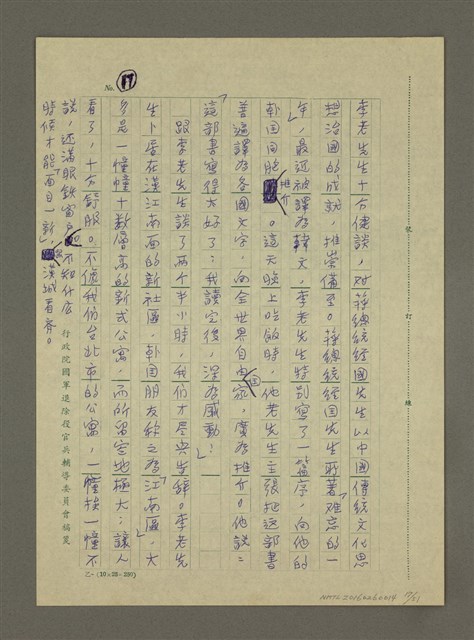 No. 17
李老先生十分健談，对蔣總統經國先生以中國傳統文化思
想治國的成就，推崇備至。蔣總統經国先生所著「难忘的一
年」，最近被譯為韓文，李老先生特別寫了一篇序，向他的
韩国同胞推介。這天晚上吃飯時，他老先生主張把这部書
普遍譯為各國文字，向全世界自由國家，廣為推介。他說：
「這部書寫得太好了；我讀完後，深為感動！」
跟李老先生談了两个半小時，我们才尽兴告辞。李老先
生卜居在漢江南面的新社區，韩国朋友称之為「江南區」，大
多是一幢幢十數層高的新式公寓，而所留空地極大；讓人
看了，十分舒服。不像我们台北市的公寓，一幢挨一幢不
說，还滿眼鉄窗，不知什広
時候才能「面目一新」，漢城看齊。
行政院國軍退除役官兵輔導委員會稿箋
裝 訂 線
乙-(10×25=250)
NMTL20160260014 17/21